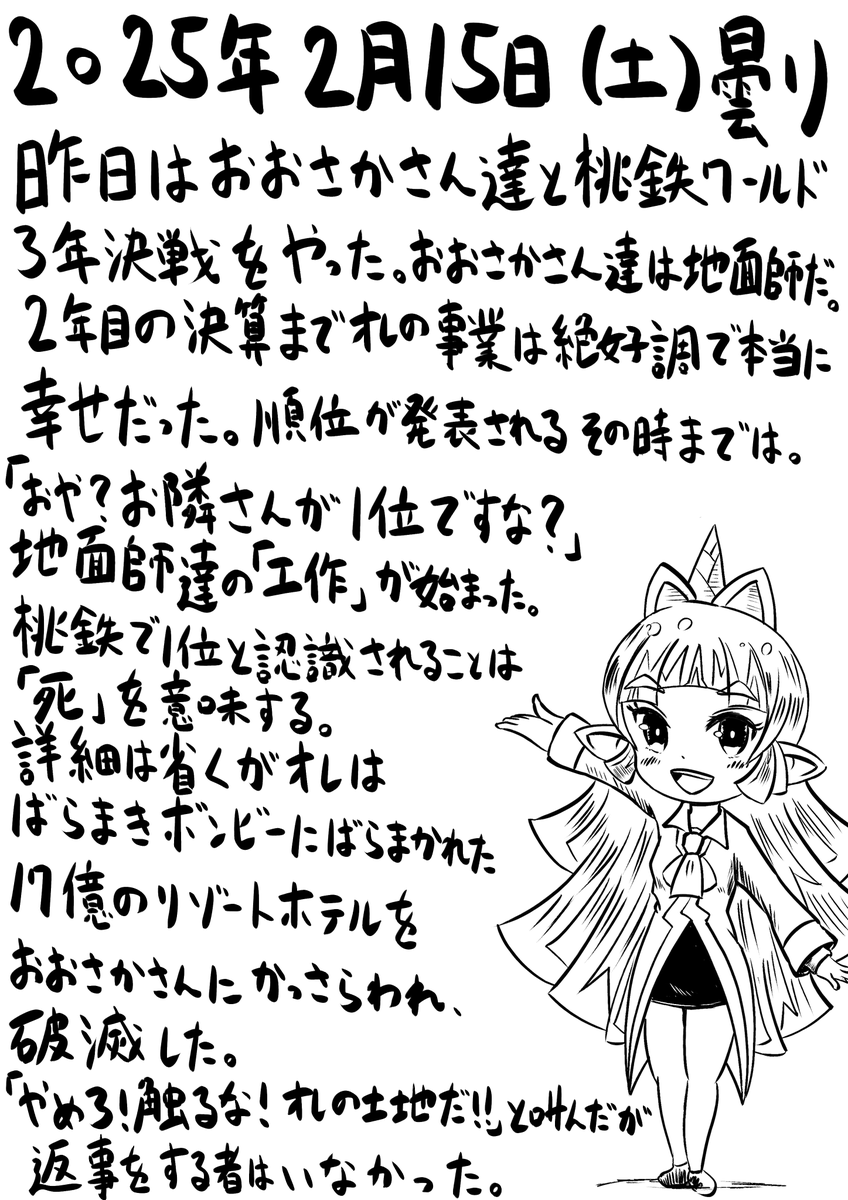 2025年2月15日(土)曇り
昨日はおおさかさん達と桃鉄ワールド
3年決戦をやった。おおさかさん達は地面師だ。
2年目の決算までオレの事業は絶好調で本当に
幸せだった。順位が発表されるその時までは。
「おや?お隣さんが1位ですな?」
地面師達の「工作」が始まった。
桃鉄で1位と認識されることは
「死」を意味する。
詳細は省くがオレは
ばらまきボンビーにばらまかれた
17億のリゾートホテルを
おおさかさんにかっさらわれ、
破滅した。
「やめろ!触るな!オレの土地だ!!」と叫んだが
返事をする者はいなかった。